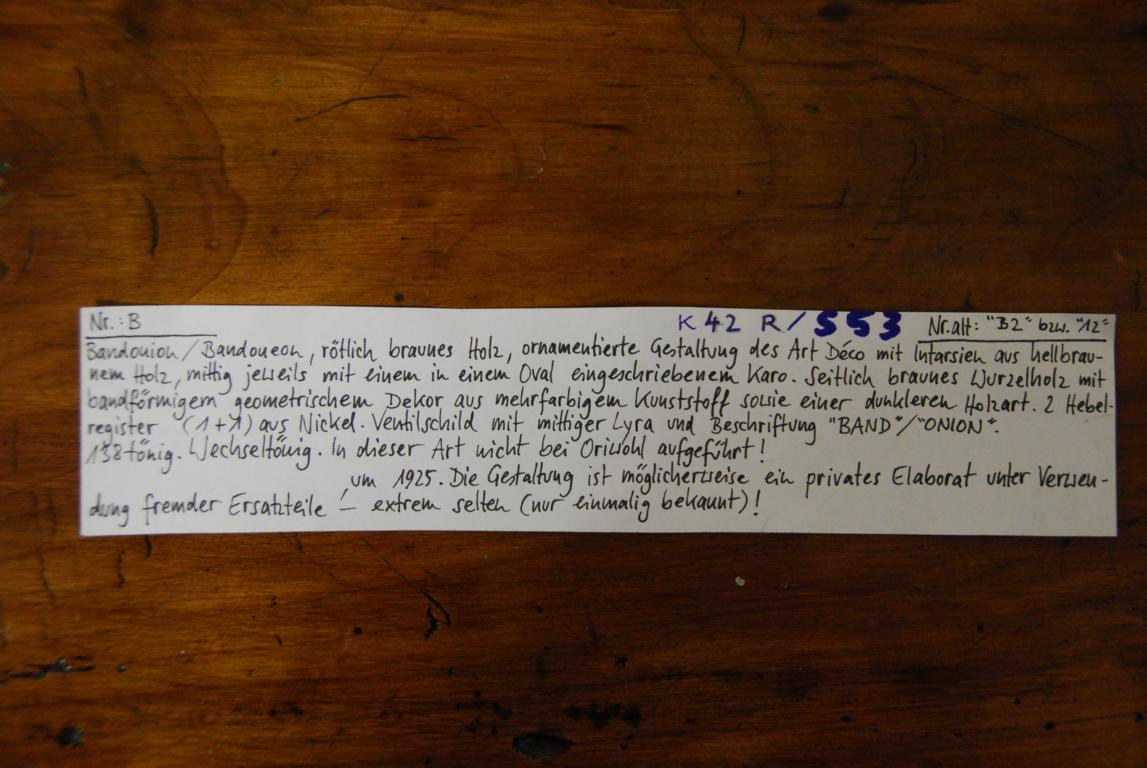 Nr.: B K 42 R/553 Nr.alt: "B2" bzw. "12"
Bandonion/Bandoneon, rötlich braunes Holz, ornamentierte Gestaltung des Art Déco mit Intarsien aus hellbrau-
nem Holz, mittig jeweils mit einem in einem Oval eingeschriebenem Karo. Seitlich braunes Wurzelholz mit
bandförmigem geometrischem Dekor aus mehrfarbigem Kunststoff sowie einer dunkleren Holzart. 2 Hebel-
register (1+1) aus Nickel. Ventilschild mit mittiger Lyra und Beschriftung "BAND"/"ONION".
138tönig. Wechseltönig. In dieser Art nicht bei Oriwohl aufgeführt!
um 1925. Die Gestaltung ist möglicherweise ein privates Elaborat unter Verwen-
dung fremder Ersatzteile – extrem selten (nur einmalig bekannt)!